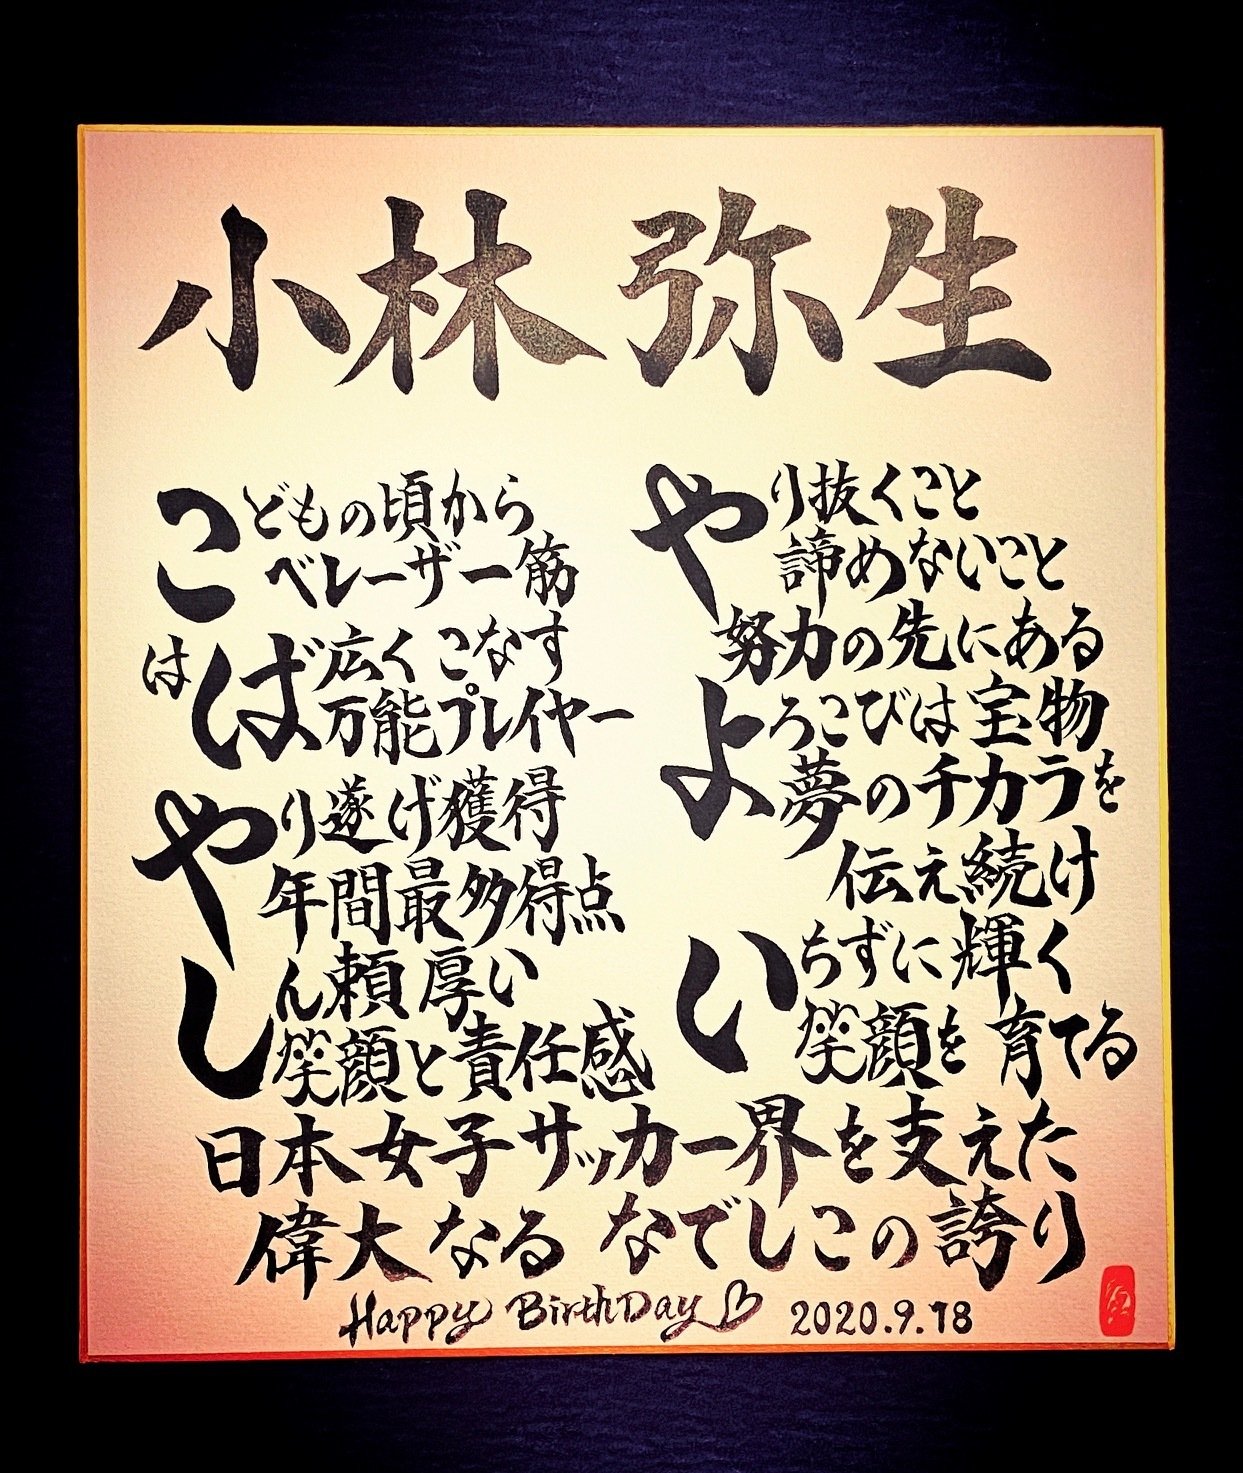 小林 弥生
こどもの頃から
ベレーザ一筋
は
ば広くこなす
万能プレイヤー
やり遂げ獲得
年間最多得点
しん頼厚い
笑顔と責任感
やり抜くこと
諦めないこと
努力の先にある
よろこびは宝物
夢のチカラを
伝え続け
いちずに輝く
笑顔を育てる
日本女子サッカー界を支えた
偉大なる なでしこの誇り
Happy BirthDay♡ 2020.9.18